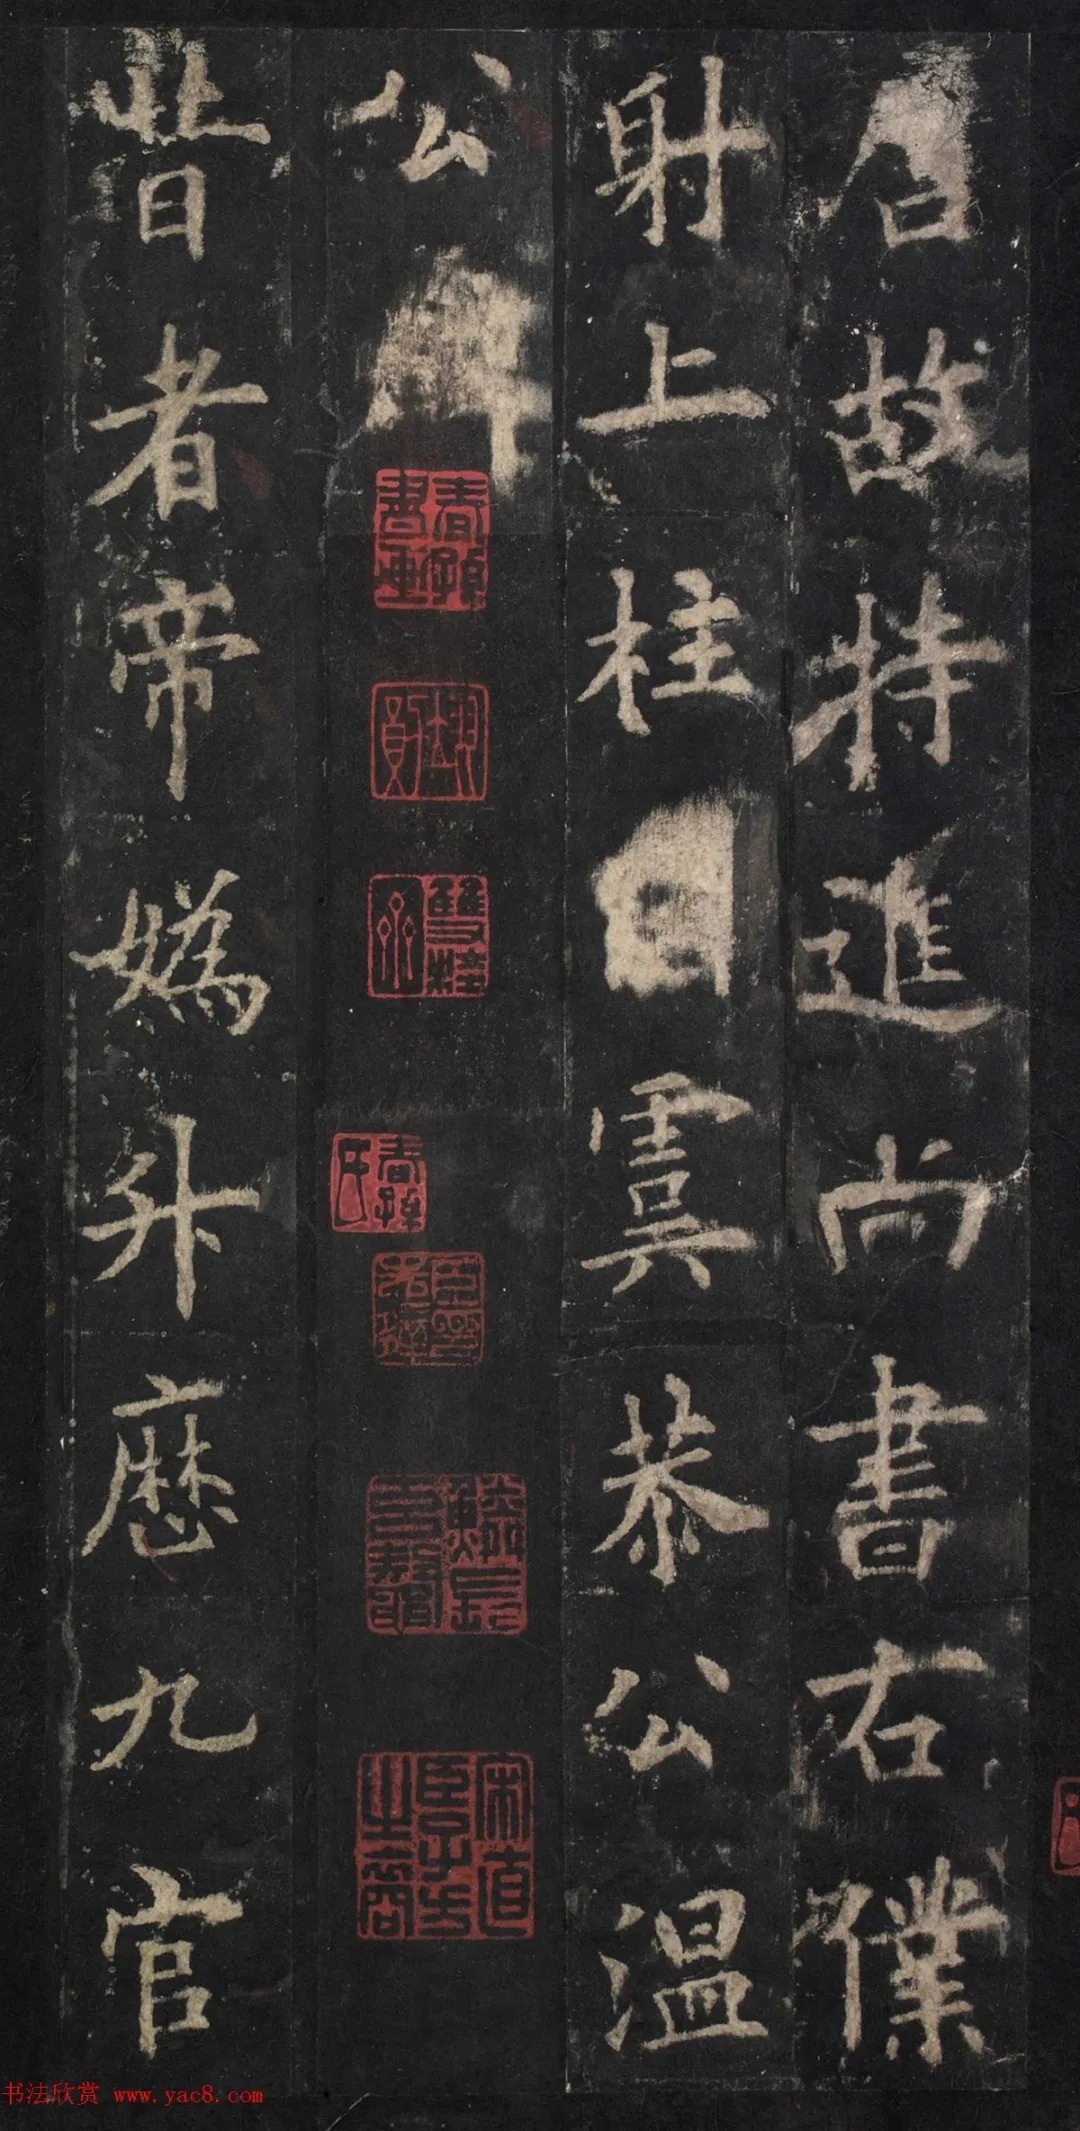 唐故特進尚書右僕
射上柱國虞恭公溫
公碑
昔者帝媯升歷九官
书法欣赏 www.yac8.com